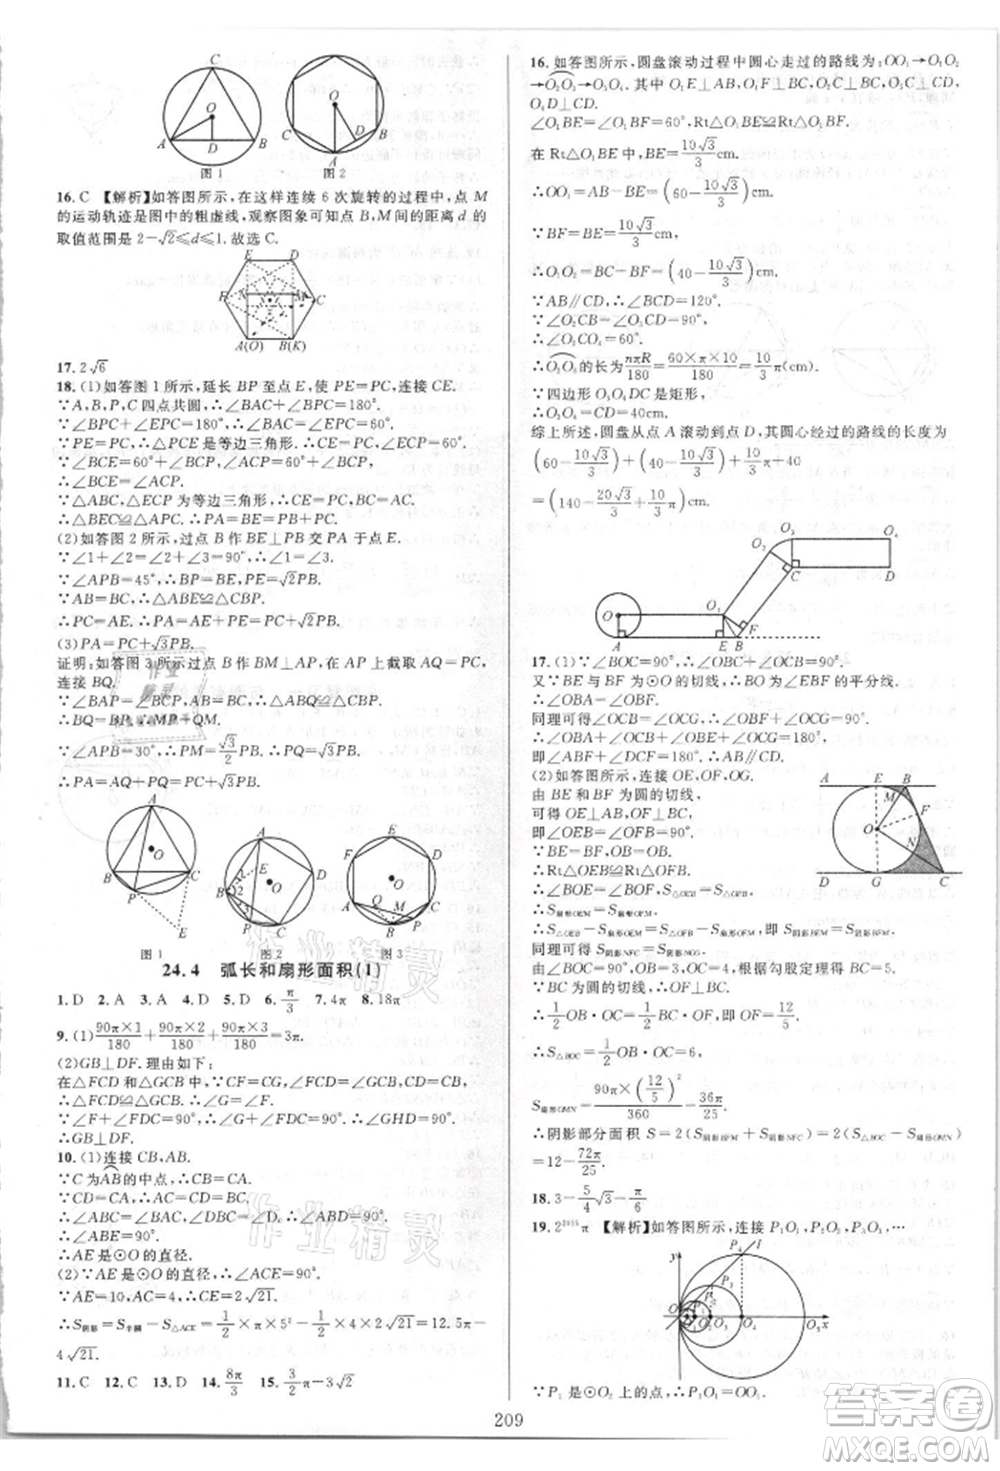 图1
图2
16. C 【解析】如答图所示,在这样连续 6 次旋转的过程中,点 M
的运动轨迹是图中的粗虚线,观察图象可知点 B,M间的距离 d 的
取值范围是 2-√2≤d≤1.故选 C.
17. 2√6
18. (1)如答图 1 所示,延长 BP 至点 E,使 PE=PC,连接 CE.
∵A,B,P,C 四点共圆,∴∠BAC+∠BPC=180°.
∵∠BPC+∠EPC=180°,∴∠BAC=∠CPE=60°.
∵PE=PC,∴△PCE 是等边三角形.
∵∠BCE=60°+∠BCP,∠ACP=60°+∠BCP,
∴∠BCE=∠ACP.
∵△ABC,△ECP 为等边三角形,∴CE=PC,AC=BC.
∴△BEC≌△APC.∴PA=BE=PB+PC.
(2)如答图 2 所示,过点 B 作 BE⊥PB 交 PA 于点 E.
∵∠1+∠2=∠2+∠3=90°,∴∠1=∠3.
∵∠APB=45°,∴BP=BE,∴PE=√2PB.
∵AB=BC,∴△ABE≌△CBP.
∴PC=AE.∴PA=AE+PE=PC+√2PB.
(3)PA=PC+√3PB.
证明:如答图 3所示过点 B 作 BM⊥AP,在 AP 上截取 AQ=PC,
连接 BQ.
∵∠BAP=∠BCP,AB=BC,∴△ABQ≌△CBP.
∴BQ=BP.∴MP=QM.
∵∠APB=30°,∴PM=√3/2PB.∴PQ=√3PB.
∴PA=AQ+PQ=PC+√3PB.
图1
图2
图3
24.4 弧长和扇形面积(1)
1. D 2. A 3. A 4. D 5. D 6. π/3 7. 4π 8. 18π
9. (1)90π×1/180+90π×2/180+90π×3/180=3π.
(2)GB⊥DF.理由如下:
在△FCD 和△GCB 中,∵CF=CG,∠FCD=∠GCB=90°,CD=CB,
∴△FCD≌△GCB.∴∠G=∠F.
∵∠F+∠FDC=90°,∴∠G+∠FDC=90°,∴∠GHD=90°.
∴GB⊥DF.
10. (1)连接 CB,AB.
∵C 为AB的中点,∴CB=CA,∴∠ABC=∠CAB.
∵CD=CA,∴BC=CD=CA,
∴∠ABE=90°.
∴AE 是⊙O 的直径.
(2)∵AE 是⊙O 的直径,∴∠ACE=90°.
∵AE=10,AC=4,∴CE=2√21.
∴S阴影=S半圆-S△ACE=1/2×π×5²-1/2×4×2√21=12.5π-
4√21.
11. C 12. C 13. D 14. 8π/3
16. 如答图所示,圆盘滚动过程中圆心走过的路线为:OO₁→O₁O₂
→O₂O₃→O₃O₄.其中,O₁E⊥AB,O₁F⊥BC,O₂C⊥BC,O₃C⊥
CD,O₄D⊥CD.
∠O₁BE=∠O₁BF=60°,Rt△O₁BE≌Rt△O₁BF.
在 Rt△O₁BE 中,BE=10√3/3cm.
∴OO₁=AB-BE=(60-10√3/3)cm.
∵BF=BE=10√3/3cm,
∴O₁O₂=BC-BF=(40-10√3/3)cm.
∵AB∥CD,∴∠BCD=120°.
∵∠O₂CB=∠O₃CD=90°,
∴∠O₂CO₃=60°.
∴O₂O₃的长为nπR/180=60×π×10/180=10/3π(cm).
∵四边形 O₃O₄DC 是矩形,
∴O₃O₄=CD=40cm.
综上所述,圆盘从点 A 滚动到点 D,其圆心经过的路线的长度为
(60-10√3/3)+(40-10√3/3)+10/3π+40
=(140-20√3/3+10/3π)cm.
17. (1)∵∠BOC=90°,∴∠OBC+∠OCB=90°.
又∵BE 与 BF 为⊙O 的切线,∴BO 为∠EBF 的平分线.
∴∠OBA=∠OBF.
同理可得∠OCB=∠OCG,∴∠OBF+∠OCG=90°.
∴∠OBA+∠OCB+∠OBF+∠OCG=180°,
即∠ABF+∠DCF=180°.∴AB∥CD.
(2)如答图所示,连接 OE,OF,OG.
由 BE 和 BF 为圆的切线,
可得 OE⊥AB,OF⊥BC,
即∠OEB=∠OFB=90°.
∵OE=OF,OB=OB,
∴Rt△OEB≌Rt△OFB.
∴∠BOE=∠BOF,S△OEB=S△OFB.
∴S扇形OEM=S扇形OFM,∴S阴影BEM=S阴影BFM.
同理可得 S阴影NFC=S阴影NGC.
由∠BOC=90°,OB=3,OC=4,根据勾股定理得 BC=5.
∵BC 为圆的切线,∴OF⊥BC.
∴1/2OB·OC=1/2BC·OF,即 OF=12/5.
∴S△BOC=1/2OB·OC=6,
S扇形OMN=90π×(12/5)²/360=36π/25.
∴阴影部分面积 S=2(S阴影BFM+S阴影NFC)=2(S△BOC-S扇形OMN)
=12-72π/25.
18. 3-5/4√3-π/6
19. 2²⁰¹⁵π 【解析】如答图所示,连接 P₁O₁,P₂O₂,P₃O₃,…
∵P₁ 是⊙O₁ 上的点,∴P₁O₁=OO₁.
209
答案卷
MXQE.COM